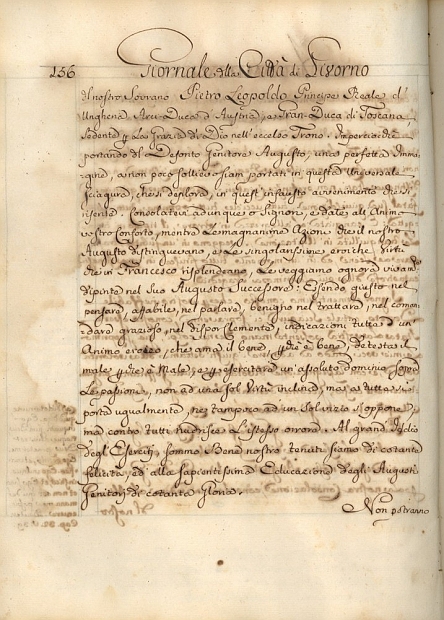 156 Giornale della Città di Livorno
Il nostro Sovrano Pietro Leopoldo Principe Reale d'
Ungheria Arci-Duca d'Austria, e Gran-Duca di Toscana
Sedente p La Grazia di Dio nell'eccelso Trono. Imperciochè
portando del Defonto Genitore Augusto, una perfetta Imma
gine, a non poco sollievo siam portati in questa Universale
sciagura, che si deplora, in quest'infausto avvenimento che si
risente. Consolatevi adunque o Signori, e date agl'Animi
vostri Conforto, mentre Le magnanime Azioni che il nostro
Augusto distinguevano, e Le singolarissime eroiche Virtù
che in Francesco risplendeano, Le veggiamo ognora vivame
dipinte nel Suo Augusto Successore: Essendo giusto nel
pensare, affabile, nel parlare, benigno nel trattare, nel coman
dare grazioso, nel dispor Clemente, indicazioni tutte d'un
Animo eroico, che ama il bene p che è bene, detesta il
male p che è Male, e p esercitare un'assoluto dominio sopra
Le passioni, non ad una sol Virtù inclina, ma a tutte si
porta ugualmente, nè tampoco ad un sol vizio s'oppone,
ma contro tutti nutrisce L'istesso orrore. Al grand'Iddio
degl'Eserciti, sommo Bene nostro tenuti siamo di cotanta
felicità, ed alla sapientissima Educazione degl'Augusti
Genitori di cotanta Gloria.
Non potranno